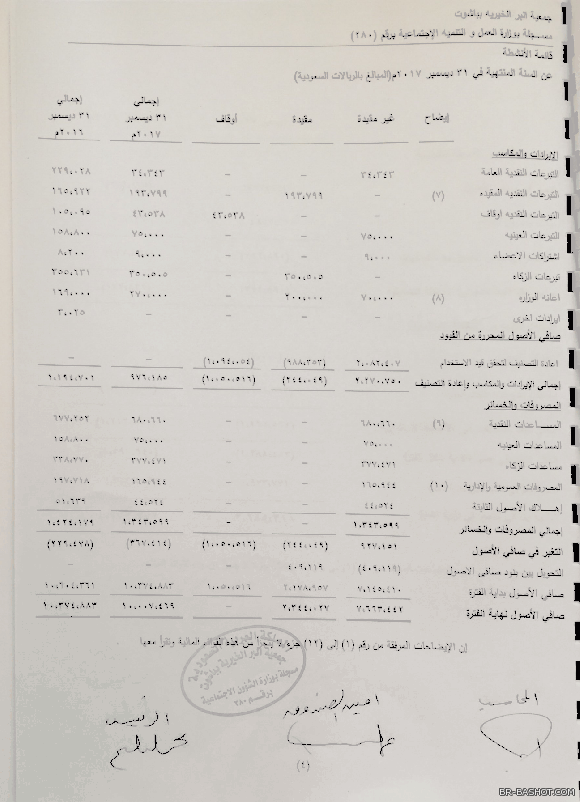 جمعية البر الخيرية بباشوت
مسجلة بوزارة العمل و التنمية الإجتماعية برقم (٢٨٠)
قائمة الأنشطة
عن السنة المنتهية في ٣١ ديسمبر ٢٠١٧م(المبالغ بالريالات السعودية)
إيضاح غير مقيدة مقيدة أوقاف إجمالي ٣١ ديسمبر ٢٠١٧م إجمالي ٣١ ديسمبر ٢٠١٦م
الإيرادات والمكاسب
التبرعات النقدية العامة ٣٤،٣٤٣ – – ٣٤،٣٤٣ ٢٢٩،٠٢٨
التبرعات النقدية المقيده (٧) – ١٩٣،٧٩٩ – ١٩٣،٧٩٩ ١٦٥،٩٢٢
التبرعات النقديه اوقاف – – ٤٣،٥٣٨ ٤٣،٥٣٨ ١٠٥،٠٩٥
التبرعات العينيه ٧٥،٠٠٠ – – ٧٥،٠٠٠ ١٥٨،٨٠٠
اشتراكات الاعضاء ٩،٠٠٠ – – ٩،٠٠٠ ٨،٢٠٠
تبرعات الزكاه – ٣٥٠،٥٠٥ – ٣٥٠،٥٠٥ ٣٥٥،٦٣١
اعانه الوزاره (٨) ٧٠،٠٠٠ ٢٠٠،٠٠٠ – ٢٧٠،٠٠٠ ١٦٩،٠٠٠
ايرادات اخرى – – – – ٣،٠٢٥
صافي الأصول المحررة من القيود
اعادة التصنيف لتحقق قيد الاستخدام ٢،٠٨٢،٤٠٧ (٩٨٨،٣٥٣) (١،٠٩٤،٠٥٤) – –
إجمالي الإيرادات والمكاسب وإعادة التصنيف ٢،٢٧٠،٧٥٠ (٢٤٤،٠٤٩) (١،٠٥٠،٥١٦) ٩٧٦،١٨٥ ١،١٩٤،٧٠١
المصروفات والخسائر
المساعدات النقدية (٦) ٦٨٠،٦٦٠ – – ٦٨٠،٦٦٠ ٦٧٧،٢٥٢
المساعدات العينيه ٧٥،٠٠٠ – – ٧٥،٠٠٠ ١٥٨،٨٠٠
مساعدات الزكاه ٣٧٧،٤٧١ – – ٣٧٧،٤٧١ ٣٣٨،٧٧٠
المصروفات العمومية والإدارية (١٠) ١٦٥،٩٤٤ – – ١٦٥،٩٤٤ ١٩٧،٧١٨
إهلاك الأصول الثابتة ٤٤،٥٢٤ – – ٤٤،٥٢٤ ٥١،٦٣٩
إجمالي المصروفات والخسائر ١،٣٤٣،٥٩٩ – – ١،٣٤٣،٥٩٩ ١،٤٢٤،١٧٩
التغير في صافي الأصول ٩٢٧،١٥١ (٢٤٤،٠٤٩) (١،٠٥٠،٥١٦) (٣٦٧،٤١٤) (٢٢٩،٤٧٨)
التحويل بين بنود صافي الاصول (٤٠٩،١١٩) ٤٠٩،١١٩ – – –
صافي الأصول بداية الفترة ٧،١٤٥،٤١٠ ٢،١٧٨،٩٥٧ ١،٠٥٠،٥١٦ ١٠،٣٧٤،٨٨٣ ١٠،٦٠٤،٣٦١
صافي الأصول نهاية الفترة ٧،٦٦٣،٤٤٢ ٢،٣٤٤،٠٢٧ – ١٠،٠٠٧،٤٦٩ ١٠،٣٧٤،٨٨٣
إن الإيضاحات المرفقة من رقم (١) إلى (١٢) جزء لا يتجزأ من هذه القوائم المالية وتقرأ معها
مسجلة بوزارة الشؤون الاجتماعية
برقم ٢٨٠
المحاسب امين الصندوق الرئيس
(٤)
BR-BASHOT.COM